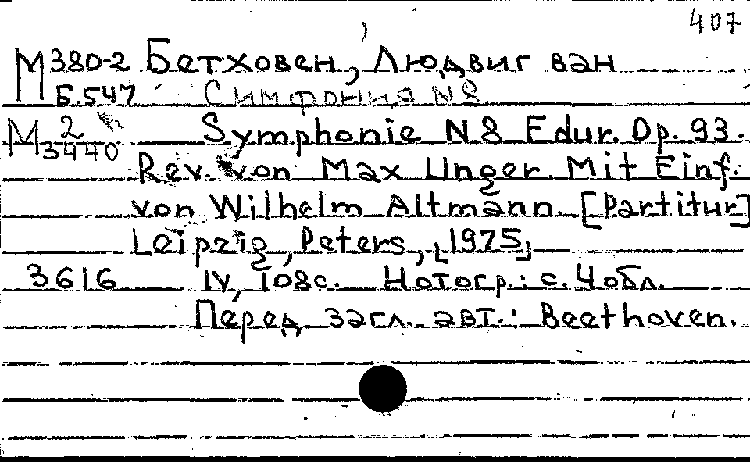 407
М380-2 Бетховен, Людвиг ван
Б.547 Симфония N8
М 2/3440 Symphonie N8 Fdur. Op. 93.
Rev. von Max Unger. Mit Einf.
von Wilhelm Altmann. [Partitur]
Leipzig, Peters, [1975]
3616 IV, 108с. Нотогр.: с. 4 обл.
Перед загл. авт.: Beethoven.